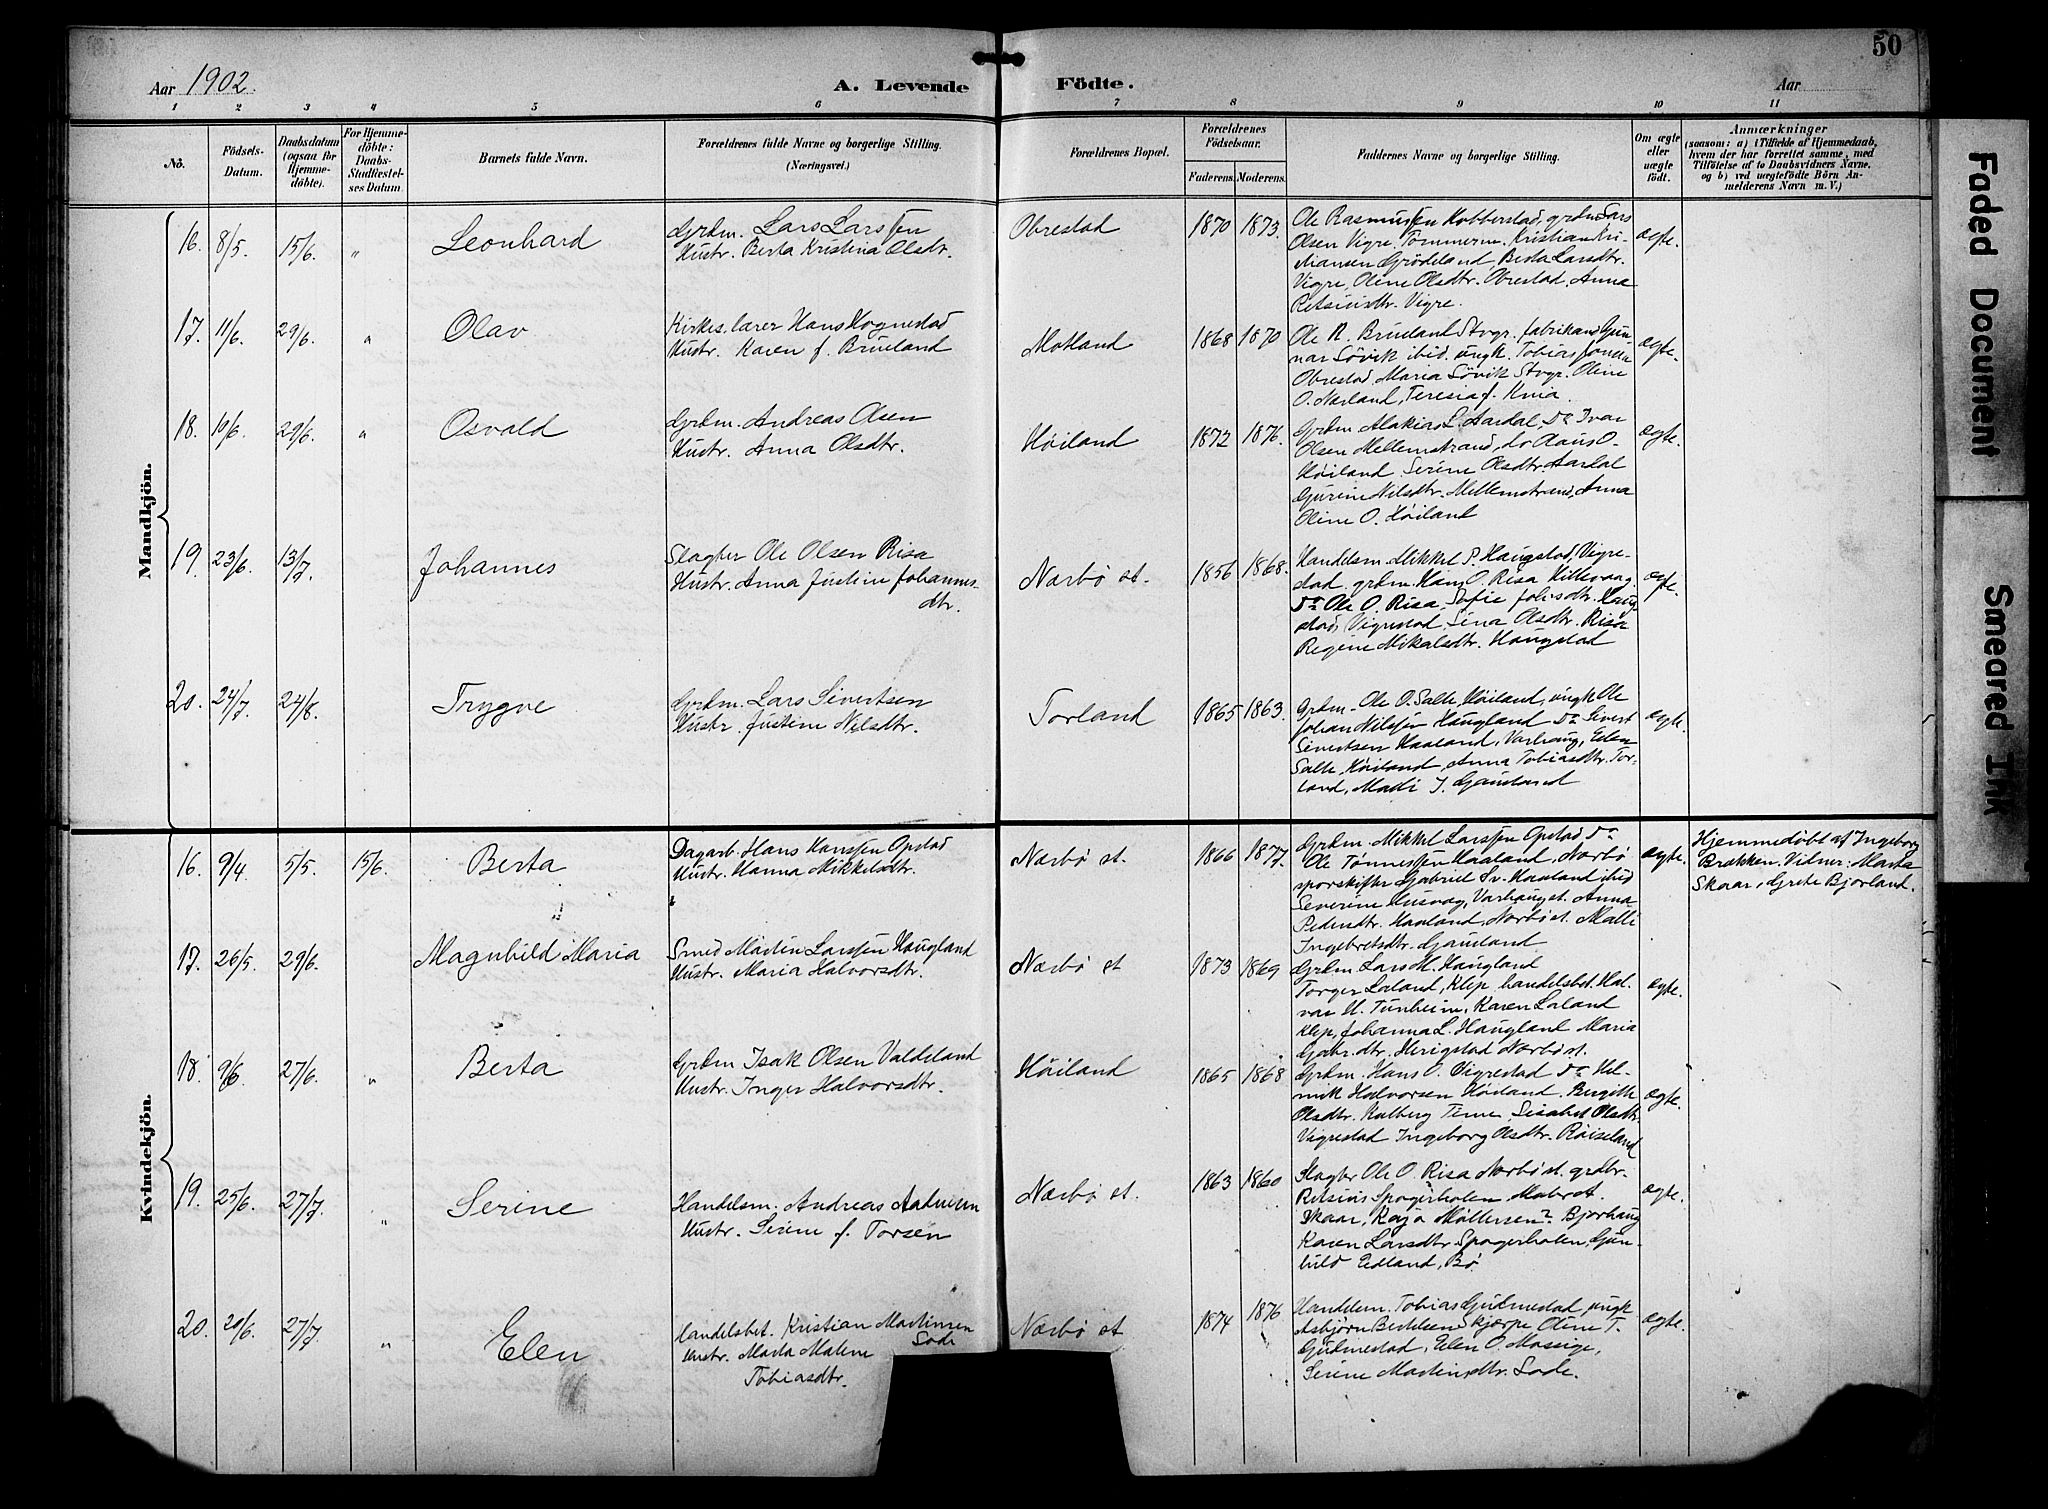 50
Aar 1902.
A. Levende Födte.
Aar
1 2 3 4 5 6 7 8 9 10 11
No.
Födsels-
Datum.
Daabsdatum
(ogsaa for
Hjemme-
döbte).
For Hjemme-
döbte:
Daabs-
Stadfæstel-
ses Datum.
Barnets fulde Navn.
Forældrenes fulde Navne og borgerlige Stilling.
(Næringsvei.)
Forældrenes Bopæl.
Forældrenes
Födselsaar.
Faderens. Moderens.
Faddernes Navne og borgerlige Stilling.
Om ægte
eller
uægte
født.
Anmærkninger
(saasom: a) i Tilfælde af Hjemmedaab,
hvem der har forrettet samme, med
Tilføielse af to Daabsvidners Navne.
og b) ved uægtefödte Börn An-
melderens Navn m. V.)
Mandkjön.
16. 8/5. 15/6. " Leonhard
Grdm. Lars Larssen
Hustr. Berta Kristina Olsdtr.
Obrestad 1870 1873.
Ole Rasmussen Hobberstad, grdm Lars
Olsen Vigre. Tömmerm. Kristian Kri-
stiansen Grödeland, Berta Larsdtr.
Vigre, Oline Olsdtr. Obrestad, Anna
Vigre.
ægte.
17. 11/6. 29/6. " Olav
Kirkes. lærer Hans Hognestad
Hustr. Karen f. Brueland
Motland 1868 1870
Ole R. Brueland Stvgr. fabrikant Gun-
nar Sövik ibid. ungk. Tobias Jonsen
Obrestad, Maria Sövik Stvgr. Oline
O. Nærland, Teresia f.
ægte.
18. 10/6. 29/6. " Osvald
Grdm. Andreas Olsen
Hustr. Anna Olsdtr.
Höiland 1872 1876.
Grdm L. Aardal, Do Ivar
Olsen Mellemstrand, do Claus O.
Höiland, Serine Olsdtr. Aardal
Gurine Nilsdtr. Mellemstrand, Anna
Oline O. Höiland
ægte.
19. 23/6. 13/7. Johannes
Slagter Ole Olsen Risa
Hustr. Anna Justine Johannes-
dtr.
Nærbö st. 1856 1868.
Handelsm. Mikkel P. Haugstad, Vigre-
stad, grdm. Hans O. Risa
Do Ole O. Risa, Sofie Johsdtr. Haug-
stad, Vigrestad, Sina Olsdtr. Risa
Regine Mikalsdtr. Haugstad
ægte.
20. 24/7. 24/8. Trygve
Grdm. Lars Sivertsen
Hustr. Justine Nilsdtr.
Torland 1865 1863.
Grdm. Ole O. Salte, Höiland, ungk Ole
Johan Nilssen Haugland Do Sivert
Sivertsen Haaland, Varhaug, Elen
Salte, Höiland, Anna Tobiasdtr. Tor-
land, J.
ægte.
Kvindekjön.
16. 9/4. 5/5. 15/6. Berta
Dagarb. Hans Hanssen Opstad
Hustr. Hanna Mikkelsdtr.
Nærbö st. 1866 1877.
Grdm. Mikkel Larssen Opstad Do
Ole Tönnessen Haaland, Nærbö
sporskifter Gabriel Sv. Haaland ibid
Severine Husvag, Varhaug st. Anna
Pedersdtr. Haaland, Nærbö st. Malli
Ingebretsdtr. Gauland
ægte.
Hjemmedøbt af Ingeborg
Brekken. Vidner: Marta
Skaar, Grete Bjorland.
17. 26/5. 29/6. " Magnhild Maria
Smed Martin Larssen Haugland
Hustr. Maria Halvorsdtr.
Nærbö st 1873 1869
Grdm. Lars M. Haugland
Torger Laland, Klep, handelsbet. Hal-
vor H. Tunheim, Karen Laland
Klep, Johanna L. Haugland Maria
Gabr.dtr. Herigstad Nærbö st.
ægte.
18. 9/6. 27/6. " Berta
Grdm Isak Olsen Valdeland
Hustr. Inger Halvorsdtr.
Höiland 1865 1868
Grdm. Hans O. Vigrestad Do Hel-
mik Halvorsen Höiland. Birgitte
Olsdtr. Kalberg Time, Lisabet Olsdtr.
Vigrestad Ingeborg Olsdtr. Röiseland
ægte.
19. 25/6. 27/7. " Serine
Handelsm. Andreas
Hustr. Serine f. Torsen
Nærbö st. 1863 1860
Slagter Ole O. Risa Nærbö st. grdbr.
Skaar, Kaja Bjorhaug
Karen Larsdtr. Gun-
hild Edland, Bö
ægte.
20. 20/6. 27/7. " Elen
handelsbet. Kristian Martinsen
Lode
Hustr. Marta Malene
Tobiasdtr.
Nærbö st 1874 1876
Handelsm. Tobias Gudmestad, ungk
Asbjörn Bertelsen Kjærpe Oline T.
Gudmestad, Elen O. Mossige,
Serine Martinsdtr. Lode.
ægte.
Faded Document
Smeared Ink